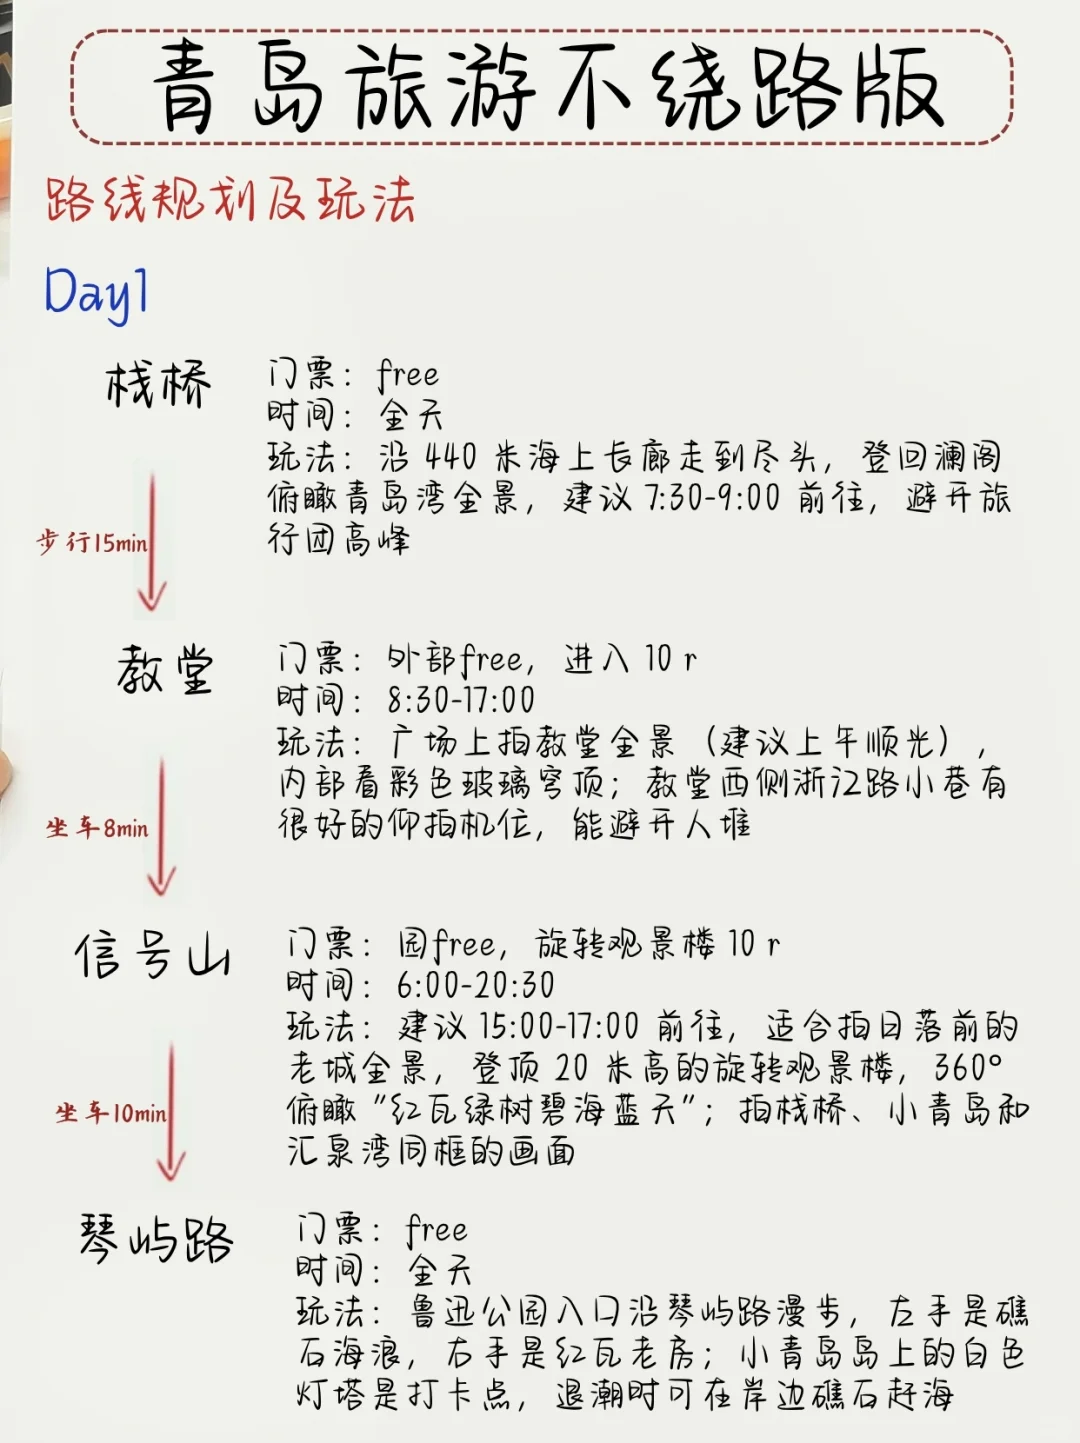 青岛旅游不绕路版
路线规划及玩法
Day1
栈桥
门票：free
时间：全天
玩法：沿 440 米海上长廊走到尽头，登回澜阁
俯瞰青岛湾全景，建议 7:30-9:00 前往，避开旅
行团高峰
步行15min
教堂
门票：外部free，进入 10 r
时间：8:30-17:00
玩法：广场上拍教堂全景（建议上午顺光），
内部看彩色玻璃穹顶；教堂西侧浙江路小巷有
很好的仰拍机位，能避开人堆
坐车8min
信号山
门票：园free，旋转观景楼 10 r
时间：6:00-20:30
玩法：建议 15:00-17:00 前往，适合拍日落前的
老城全景，登顶 20 米高的旋转观景楼，360°
俯瞰“红瓦绿树碧海蓝天”；拍栈桥、小青岛和
汇泉湾同框的画面
坐车10min
琴屿路
门票：free
时间：全天
玩法：鲁迅公园入口沿琴屿路漫步，左手是礁
石海浪，右手是红瓦老房；小青岛岛上的白色
灯塔是打卡点，退潮时可在岸边礁石赶海